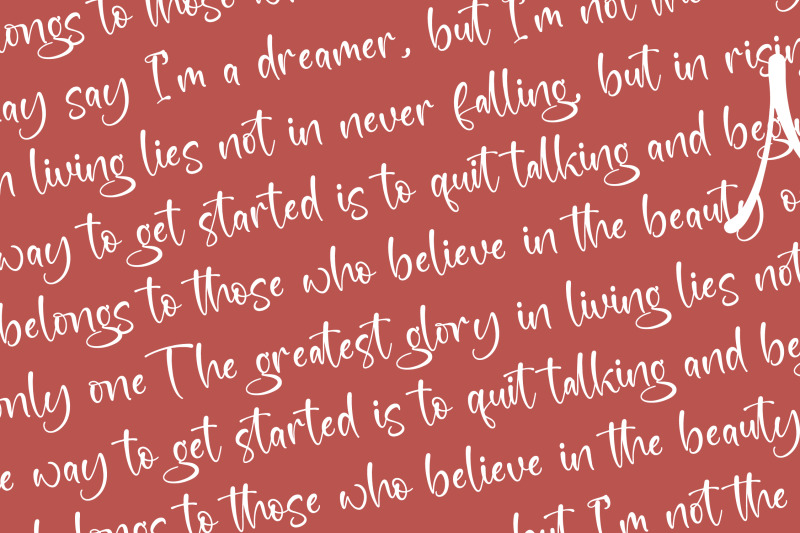 belongs to those
may say I'm a dreamer, but I'm not the
in living lies not in never falling, but in rising
way to get started is to quit talking and beg
belongs to those who believe in the beauty o
only one The greatest glory in living lies not
e way to get started is to quit talking and be
belongs to those who believe in the beauty
but I'm not the